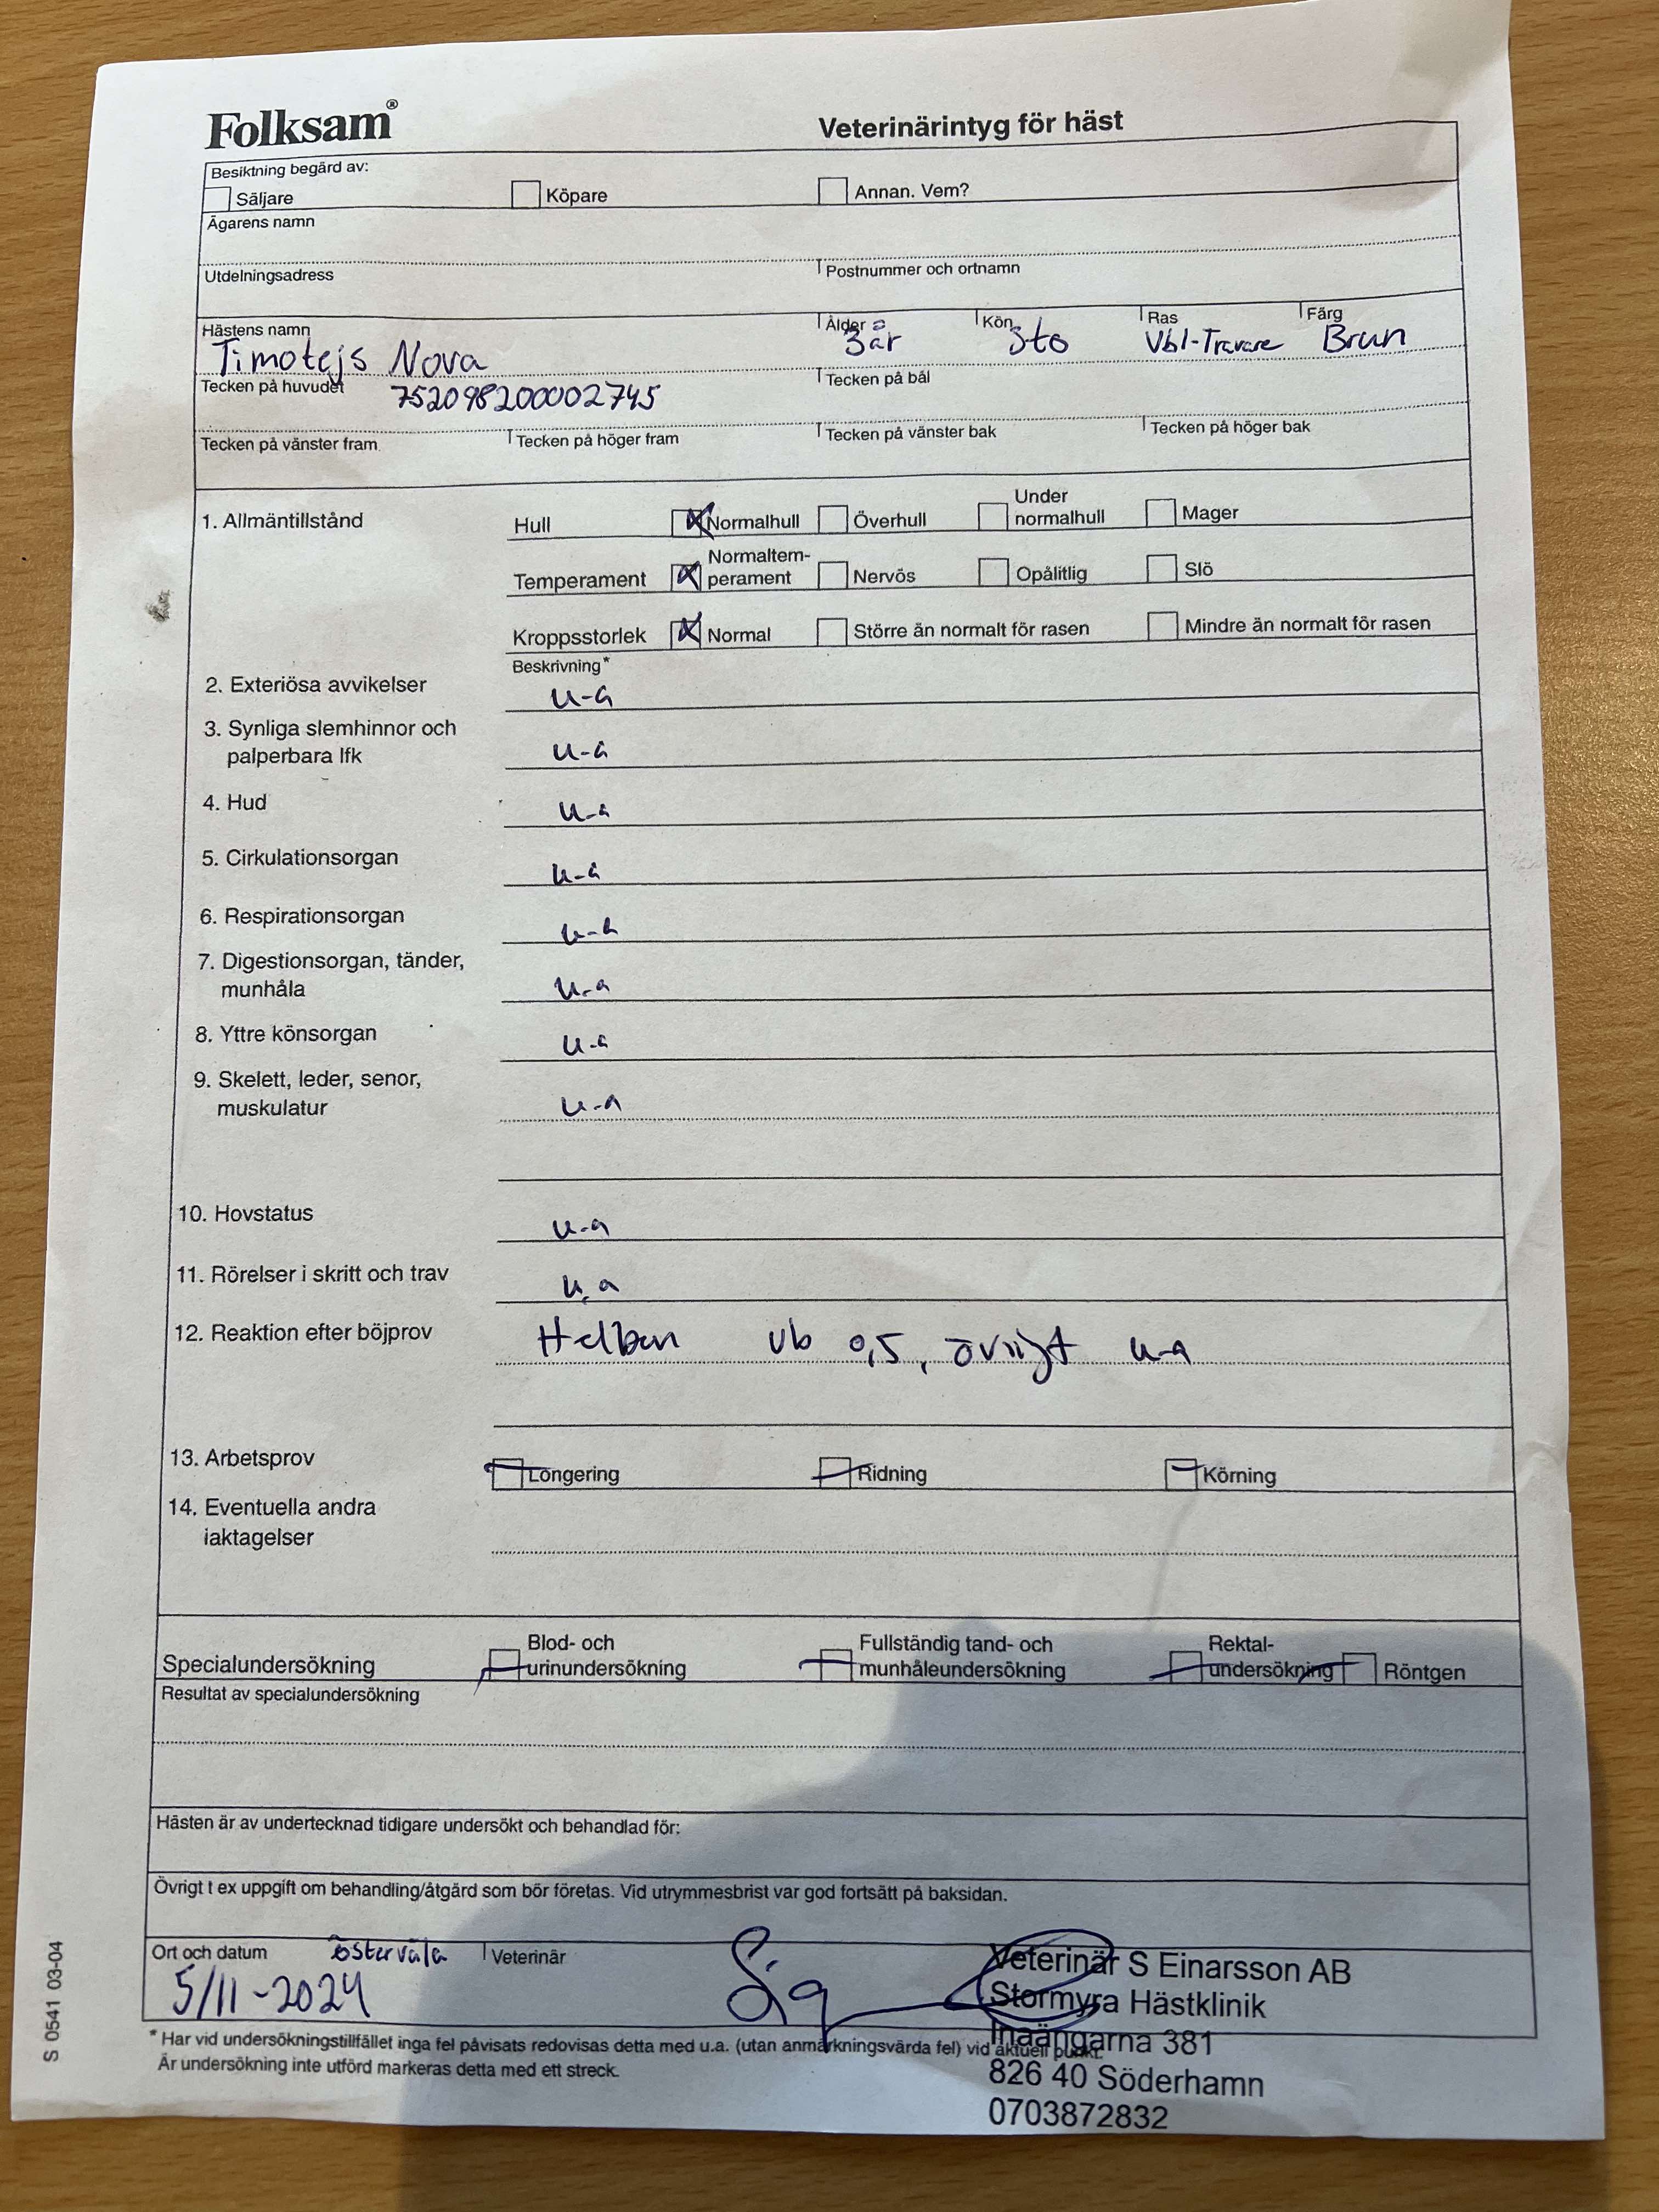 Folksam®
Veterinärintyg för häst
Besiktning begärd av:
Säljare Köpare Annan. Vem?
Ägarens namn
Utdelningsadress Postnummer och ortnamn
Hästens namn Ålder Kön Ras Färg
Timotejs Nova 3år Sto Vbl-Travare Brun
Tecken på huvudet Tecken på bål
752098200002745
Tecken på vänster fram Tecken på höger fram Tecken på vänster bak Tecken på höger bak
1. Allmäntillstånd Hull Normalhull Överhull Under normalhull Mager
Temperament Normaltem-perament Nervös Opålitlig Slö
Kroppsstorlek Normal Större än normalt för rasen Mindre än normalt för rasen
Beskrivning*
2. Exteriösa avvikelser u-a
3. Synliga slemhinnor och
palperbara lfk u-a
4. Hud u-a
5. Cirkulationsorgan u-a
6. Respirationsorgan u-a
7. Digestionsorgan, tänder,
munhåla u-a
8. Yttre könsorgan u-a
9. Skelett, leder, senor,
muskulatur u-a
10. Hovstatus u-a
11. Rörelser i skritt och trav u.a
12. Reaktion efter böjprov Helben vb 0,5, övrigt u-a
13. Arbetsprov Longering Ridning Körning
14. Eventuella andra
iaktagelser
Specialundersökning Blod- och urinundersökning Fullständig tand- och munhåleundersökning Rektal-undersökning Röntgen
Resultat av specialundersökning
Hästen är av undertecknad tidigare undersökt och behandlad för:
Övrigt t ex uppgift om behandling/åtgärd som bör företas. Vid utrymmesbrist var god fortsätt på baksidan.
Ort och datum Östervåla Veterinär
5/11-2024
Veterinär S Einarsson AB
Stormyra Hästklinik
Inaängarna 381
826 40 Söderhamn
0703872832
* Har vid undersökningstillfället inga fel påvisats redovisas detta med u.a. (utan anmärkningsvärda fel) vid aktuell punkt.
Är undersökning inte utförd markeras detta med ett streck.
S 0541 03-04